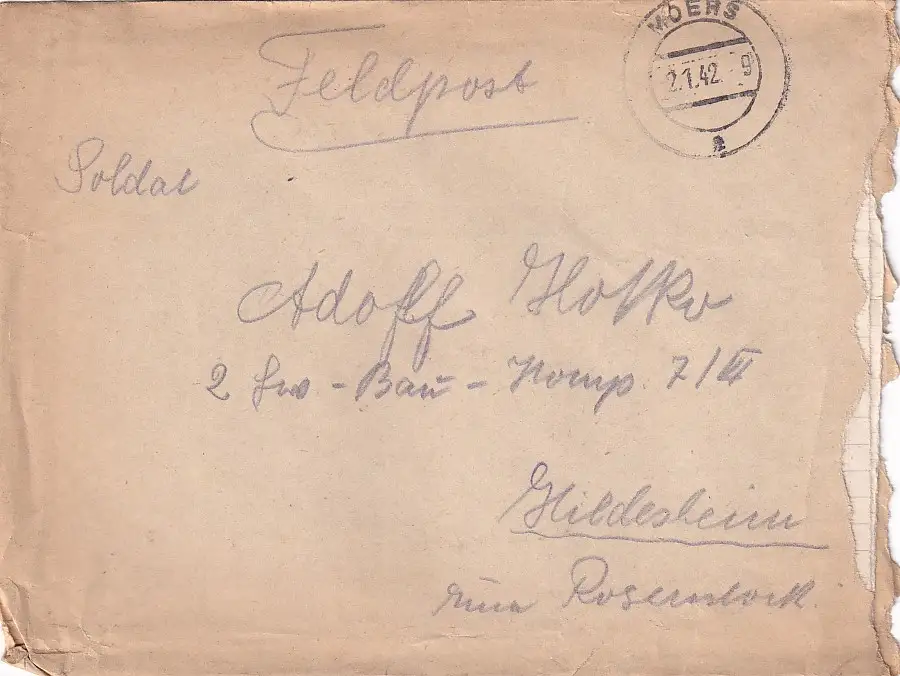 MOERS
2.1.42-9
a
Feldpost
Soldat
Adolf
2 - Bau - Komp 7/II
Hildesheim
Rosenstock